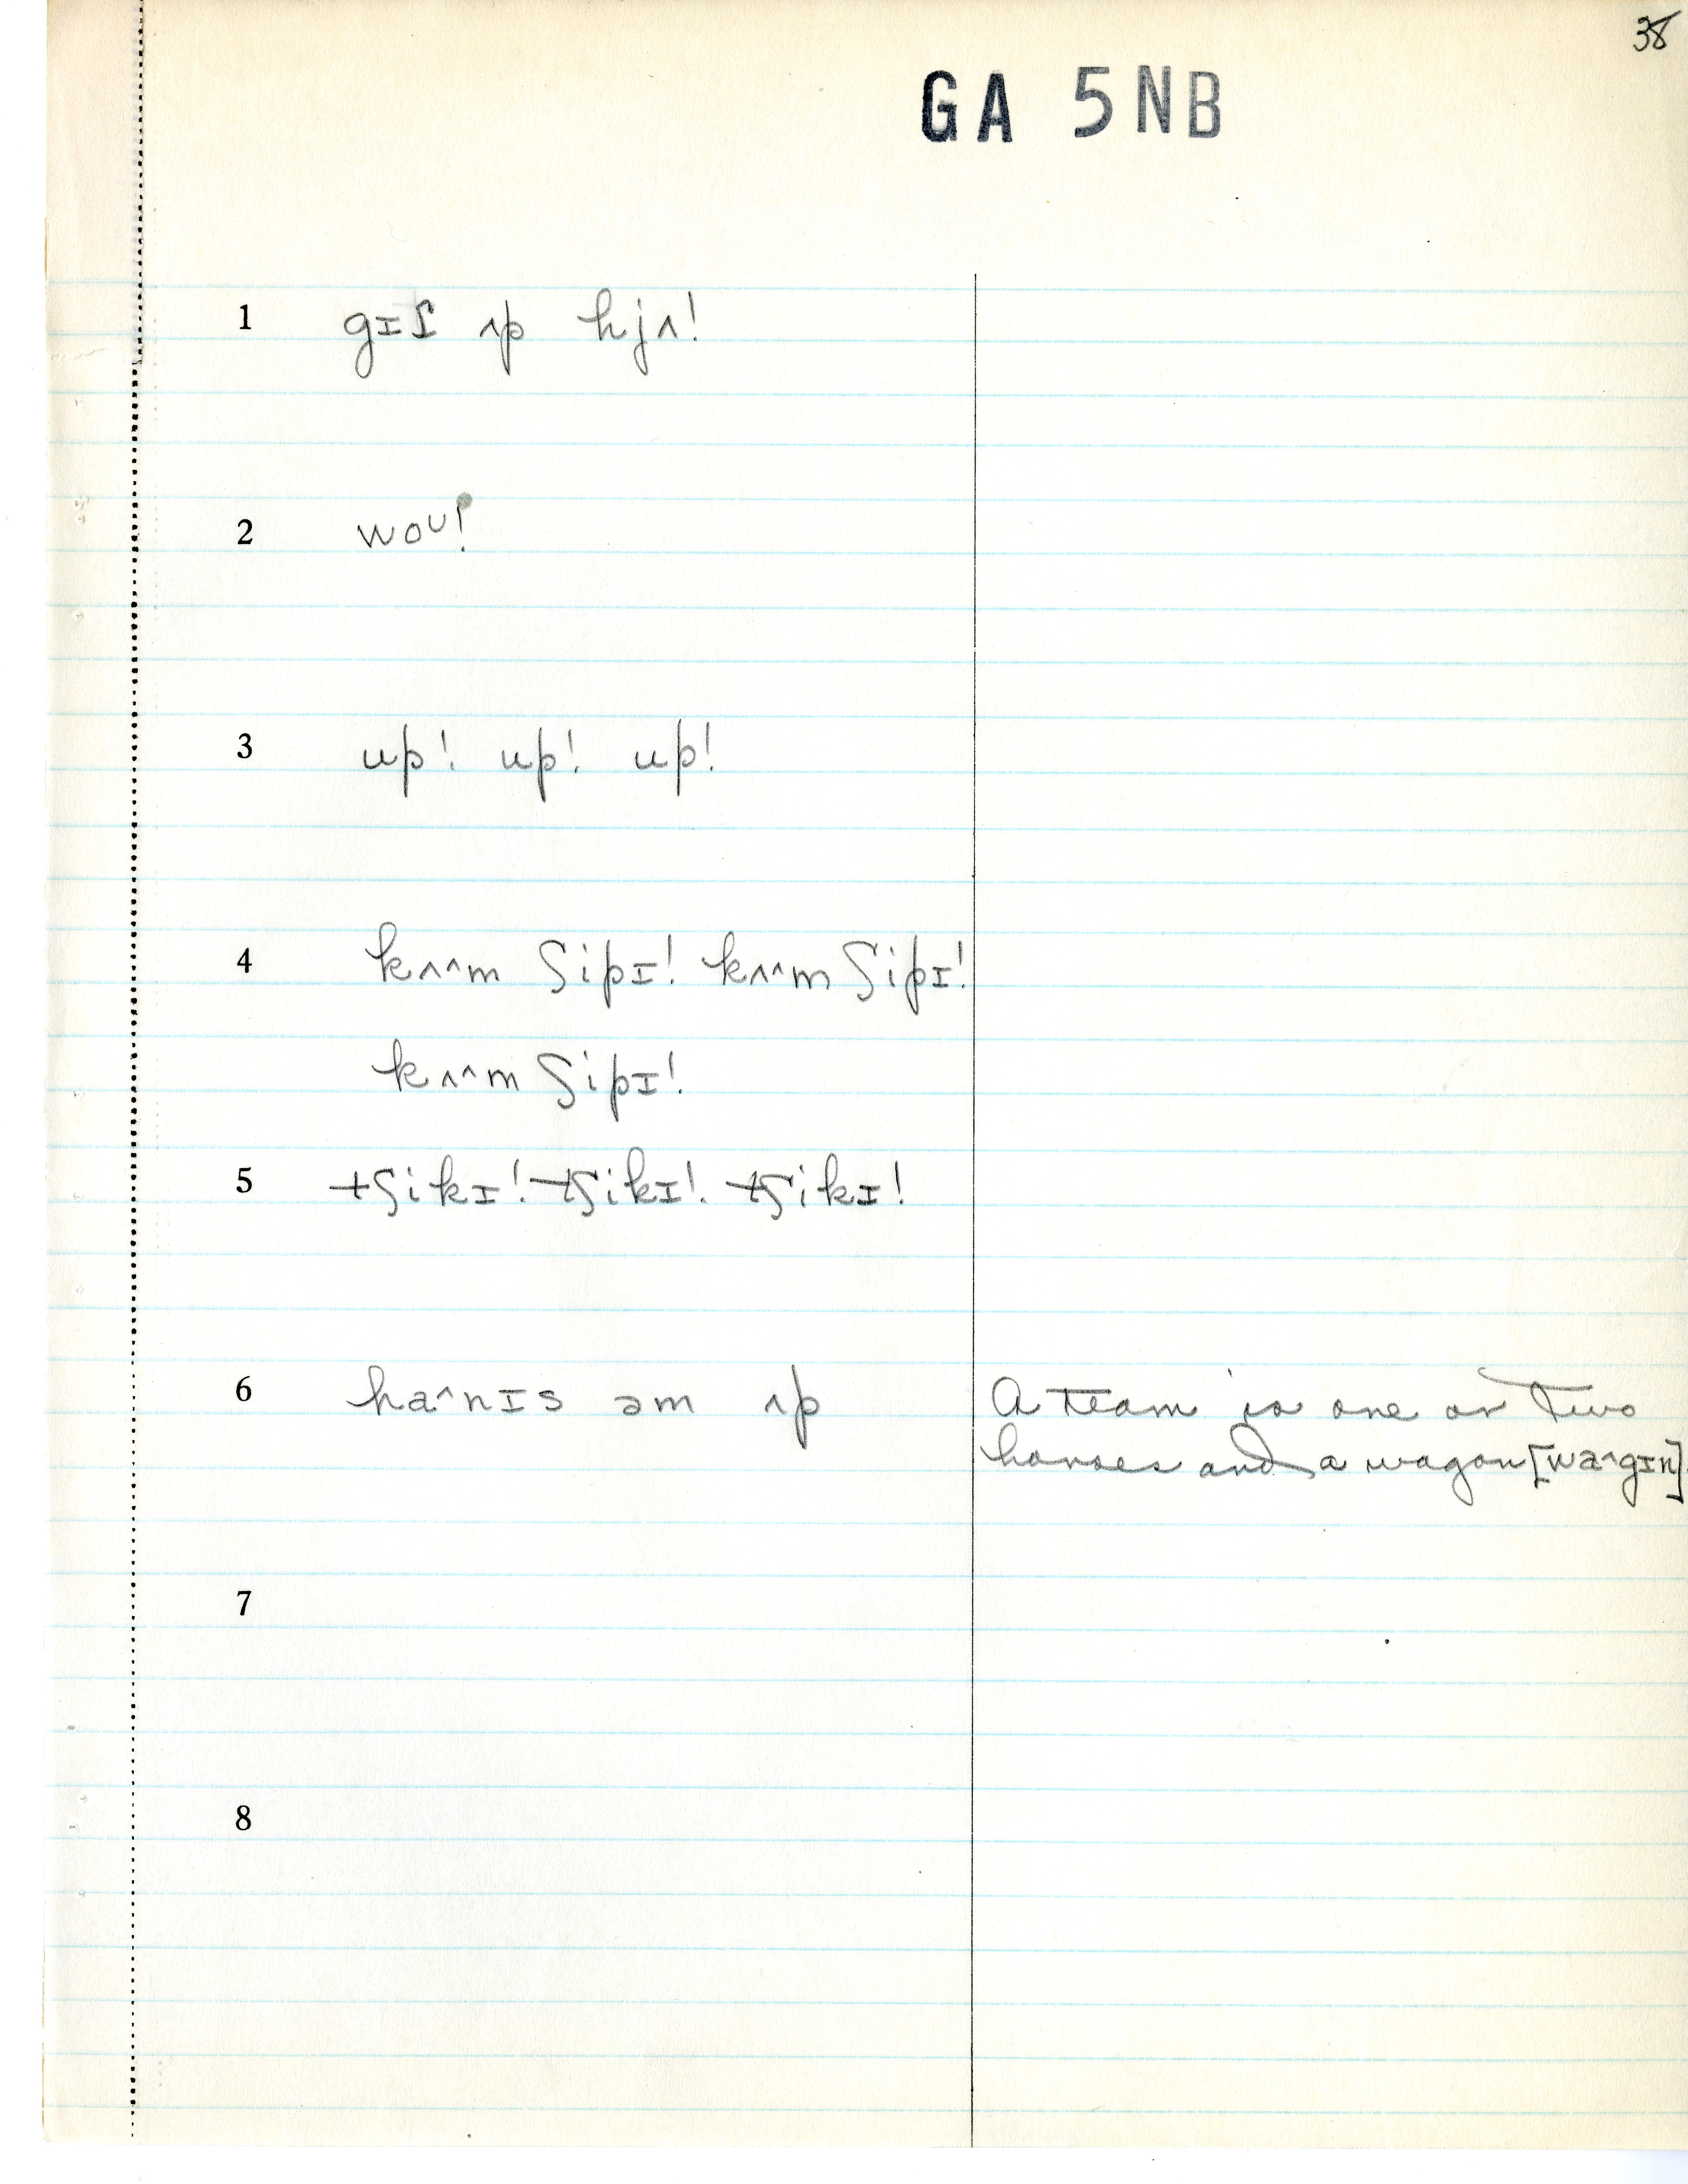 38
GA 5NB
1 gɪſ ʌp hjʌ!
2 woᴜ!
3 up! up! up!
4 kʌ^m ʃipɪ! kʌ^m ʃipɪ!
kʌ^m ʃipɪ!
5 tʃikɪ! tʃikɪ! tʃikɪ!
6 ha^nɪs əm ʌp A team is one or two
horses and a wagon [wa^gɪn].
7
8